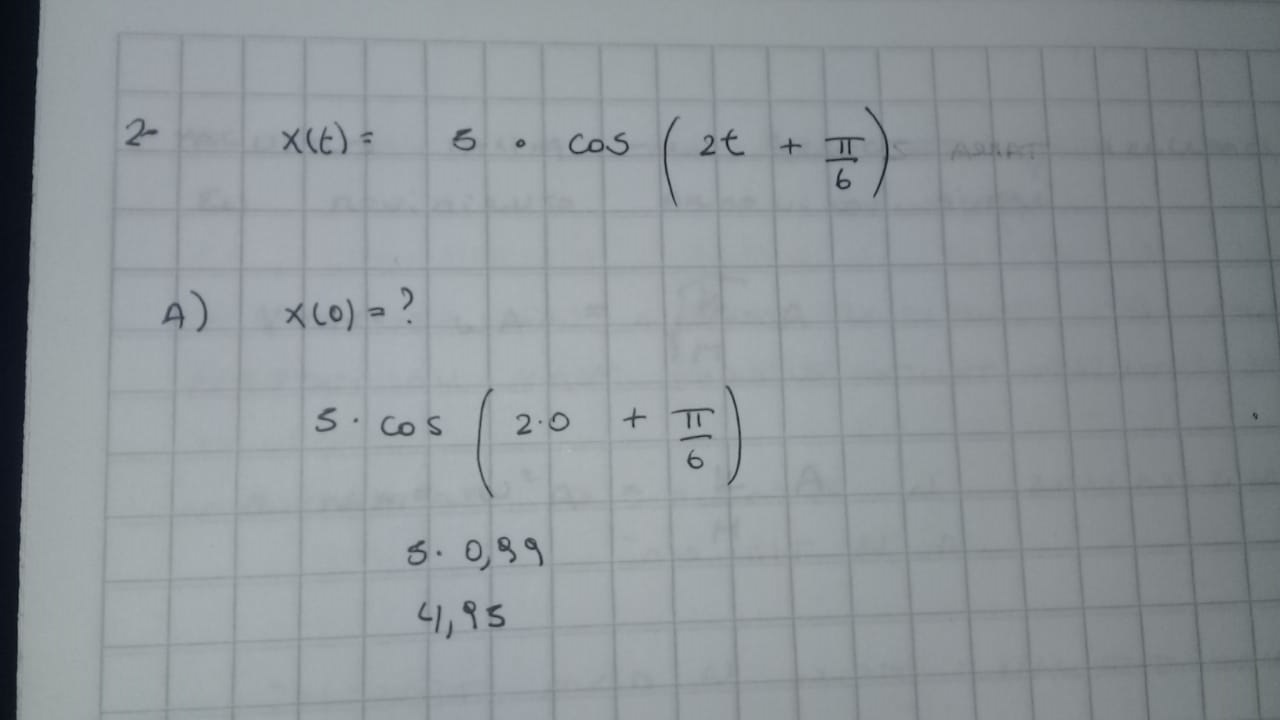 2- x(t) = 5 · cos (2t + π/6)
A) x(0) = ?
5 · cos (2·0 + π/6)
5 · 0,99
4,95